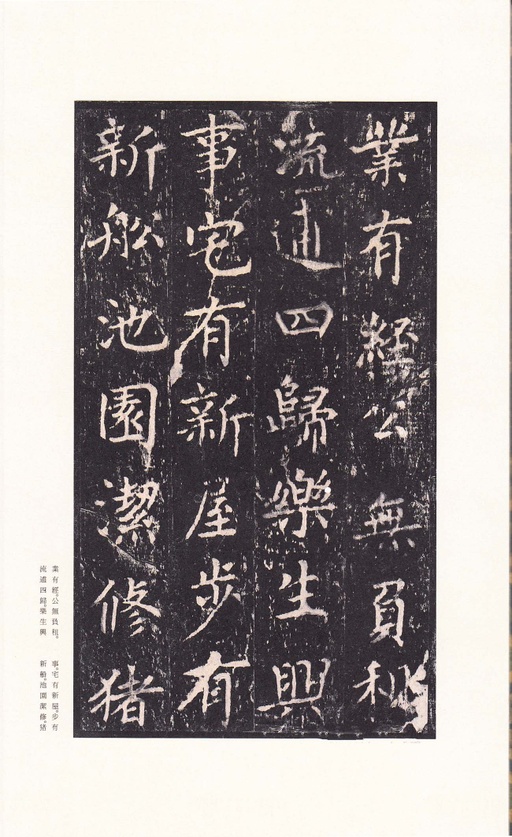 業有經公無負租
流逋四歸樂生興
事宅有新屋步有
新船池園潔修猪
業有經。公無負租。
流逋四歸。樂生興
事。宅有新屋。步有
新船。池園潔修。猪